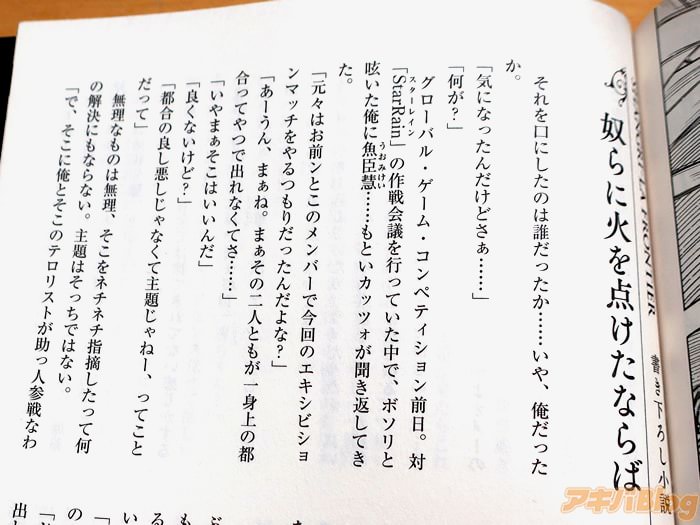 書き下ろし小説
奴らに火を点けたならば
それを口にしたのは誰だったか……いや、俺だった
か。
「気になったんだけどさぁ……」
「何が？」
グローバル・ゲーム・コンペティション前日。対
「StarRain」の作戦会議を行っていた中で、ボソリと
スターレイン
呟いた俺に魚臣慧……もといカッツォが聞き返してき
うおみけい
た。
「元々はお前ンとこのメンバーで今回のエキシビショ
ンマッチをやるつもりだったんだよな？」
「あーうん、まぁね。まぁその二人ともが一身上の都
合ってやつで出れなくてさ……」
「いやまぁそこはいいんだ」
「良くないけど？」
「都合の良し悪しじゃなくて主題じゃねー、ってこと
だって」
無理なものは無理、そこをネチネチ指摘したって何
の解決にもならない。主題はそっちではない。
「で、そこに俺とそこのテロリストが助っ人参戦なわ
アキバBlog